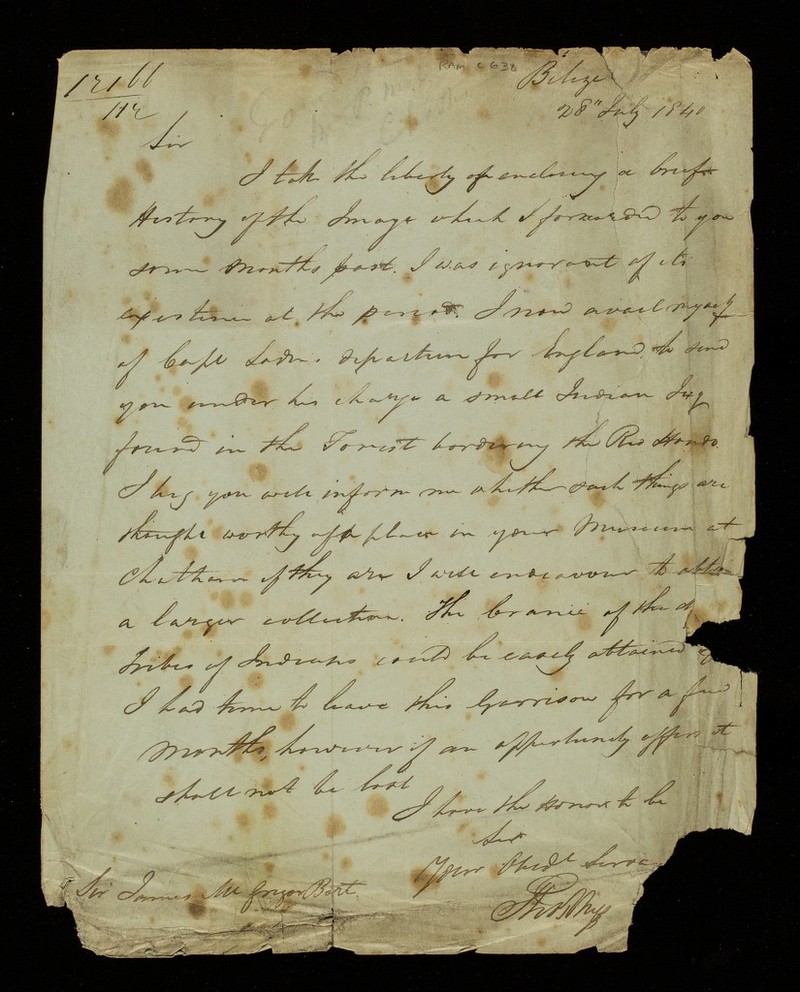 12166
1142
RAMC 638
Belize
28" July 1840
Sir
I take the liberty of enclosing a brief
History of the Image which I forwarded to you
some months past. I was ignorant of its
existence at the period. I now avail myself
of Capt departure for England to send
you under his charge a small Indian
found in the Forest bordering the Rio Hondo.
I beg you will inform me whether such things are
thought worthy of a place in your Museum at
Chatham if they are I will endeavour to obtain
a larger collection. The Crania of the
Tribes of Indians could be easily obtained if
I had time to leave this Garrison for a few
months, however if an opportunity offers it
shall not be lost
I have the Honor to be
Sir
Your Obedt Serva
Sir James McGrigor Bart.